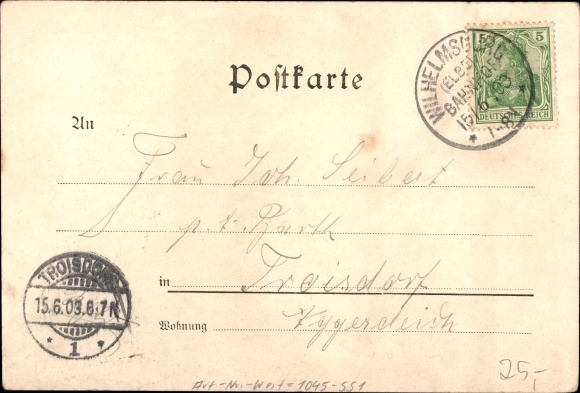 Postkarte
WILHELMSBURG
(ELBE)
BAHN
15.6.03
1-8
5 5
DEUTSCHES REICH
An
Frau Joh. Seibert
p. t. Barth
in Troisdorf
Wohnung Aggerdeich
TROISDORF
15.6.03.6-7N
* 1 *
25,-
Art-No-West=1045-551